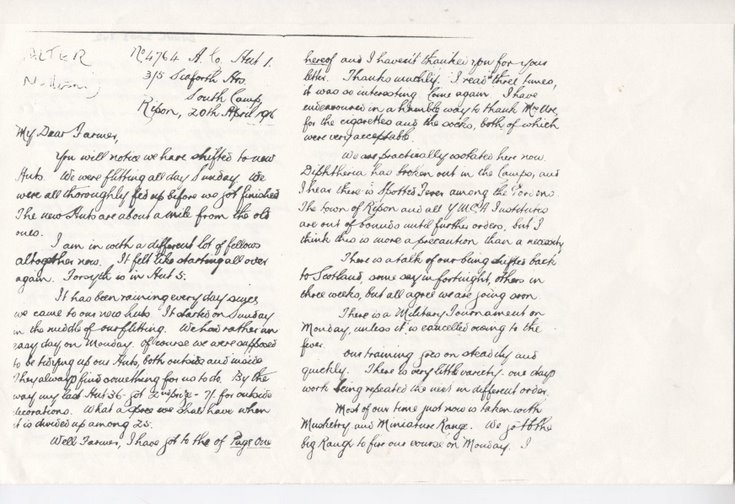 ALTER
No 4764 A. Co. Hut 1.
3/5 Seaforth Hrs.
South Camp,
Ripon, 20th April 1916
My Dear Farmer,
You will notice we have shifted to new
Huts. We were flitting all day Sunday. We
were all thoroughly fed up before we got finished
The new Huts are about a mile from the old
ones.
I am in with a different lot of fellows
altogether now. It felt like starting all over
again. Forsyth is in Hut 5.
It has been raining every day since
we came to our new huts. It started on Sunday
in the middle of our flitting. We had rather an
easy day on Monday. Of course we were supposed
to be tidying up our Huts, both outside and inside
They always find something for us to do. By the
way my last Hut 36 got prize - 7/- for outside
decorations. What a spree we shall have when
it is divided up among 25.
Well Farmer, I have got to the of Page One
hereof and I haven't thanked you for your
letter. Thanks muchly. I read it three times,
it was so interesting. Come again. I have
endeavoured in a humble way to thank Mrs Ure
for the cigarettes and the socks, both of which
were very acceptable.
We are practically isolated here now.
Diphtheria has broken out in the Camps, and
I hear there is Spotted Fever among the
The town of Ripon and all Y.M.C.A Institutes
are out of bounds until further orders, but I
think this is more a precaution than a necessity
There is a talk of our being shifted back
to Scotland, some say in fortnight, others in
three weeks, but all agree we are going soon.
There is a Military Tournament on
Monday, unless it is cancelled owing to the
fever.
Our training goes on steadily and
quickly. There is very little variety one days
work being repeated the next in different order.
Most of our time just now is taken with
Musketry and Miniature Range. We go to the
big Range to fire our course on Monday. I